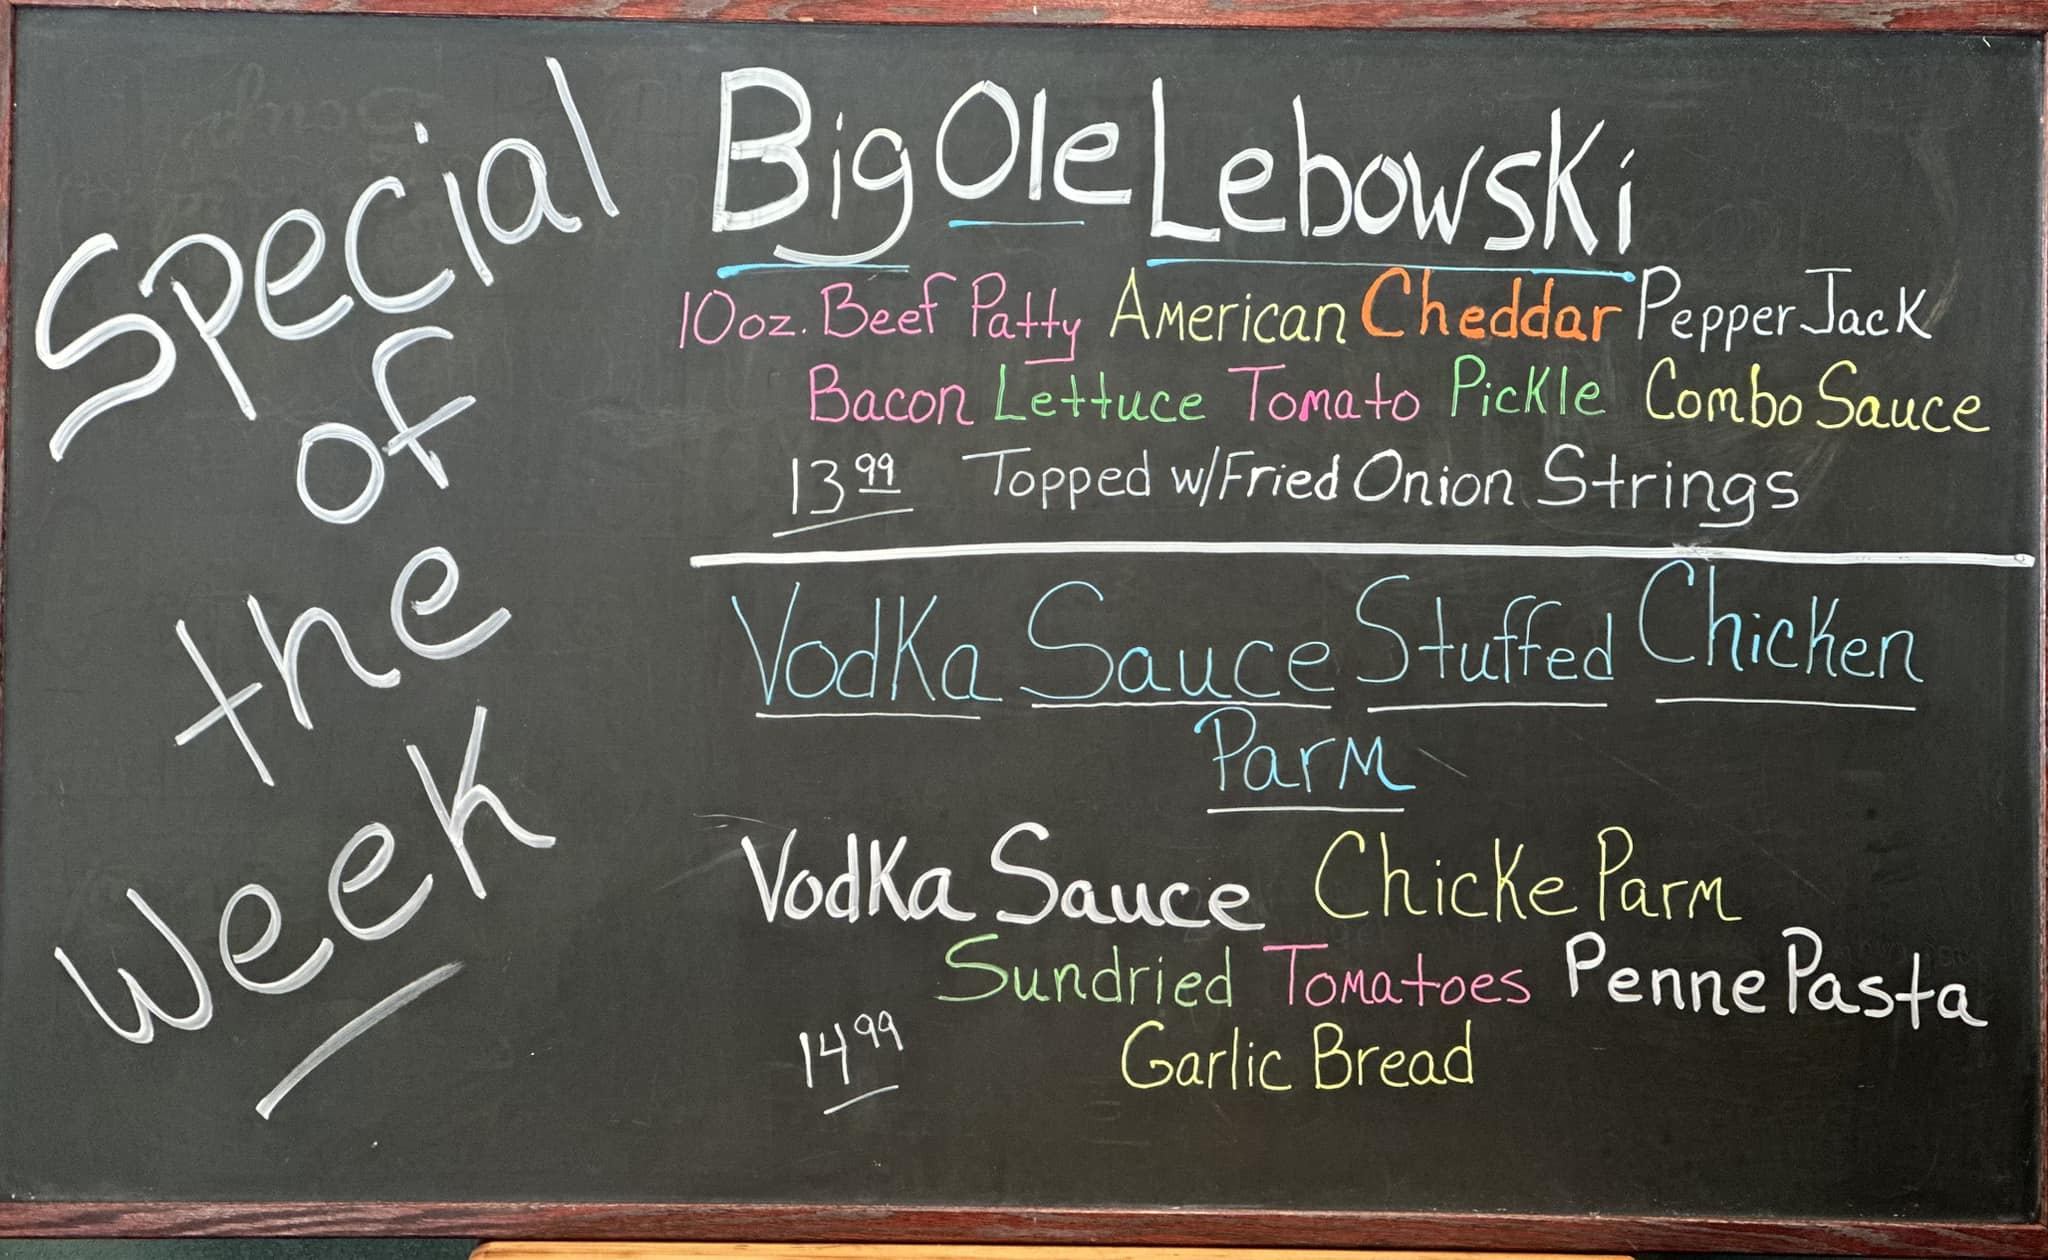 Special
of
the
Week
Big Ole Lebowski
10oz. Beef Patty American Cheddar Pepper Jack
Bacon Lettuce Tomato Pickle Combo Sauce
13 99 Topped w/Fried Onion Strings
Vodka Sauce Stuffed Chicken
Parm
Vodka Sauce Chicke Parm
Sundried Tomatoes Penne Pasta
14 99 Garlic Bread